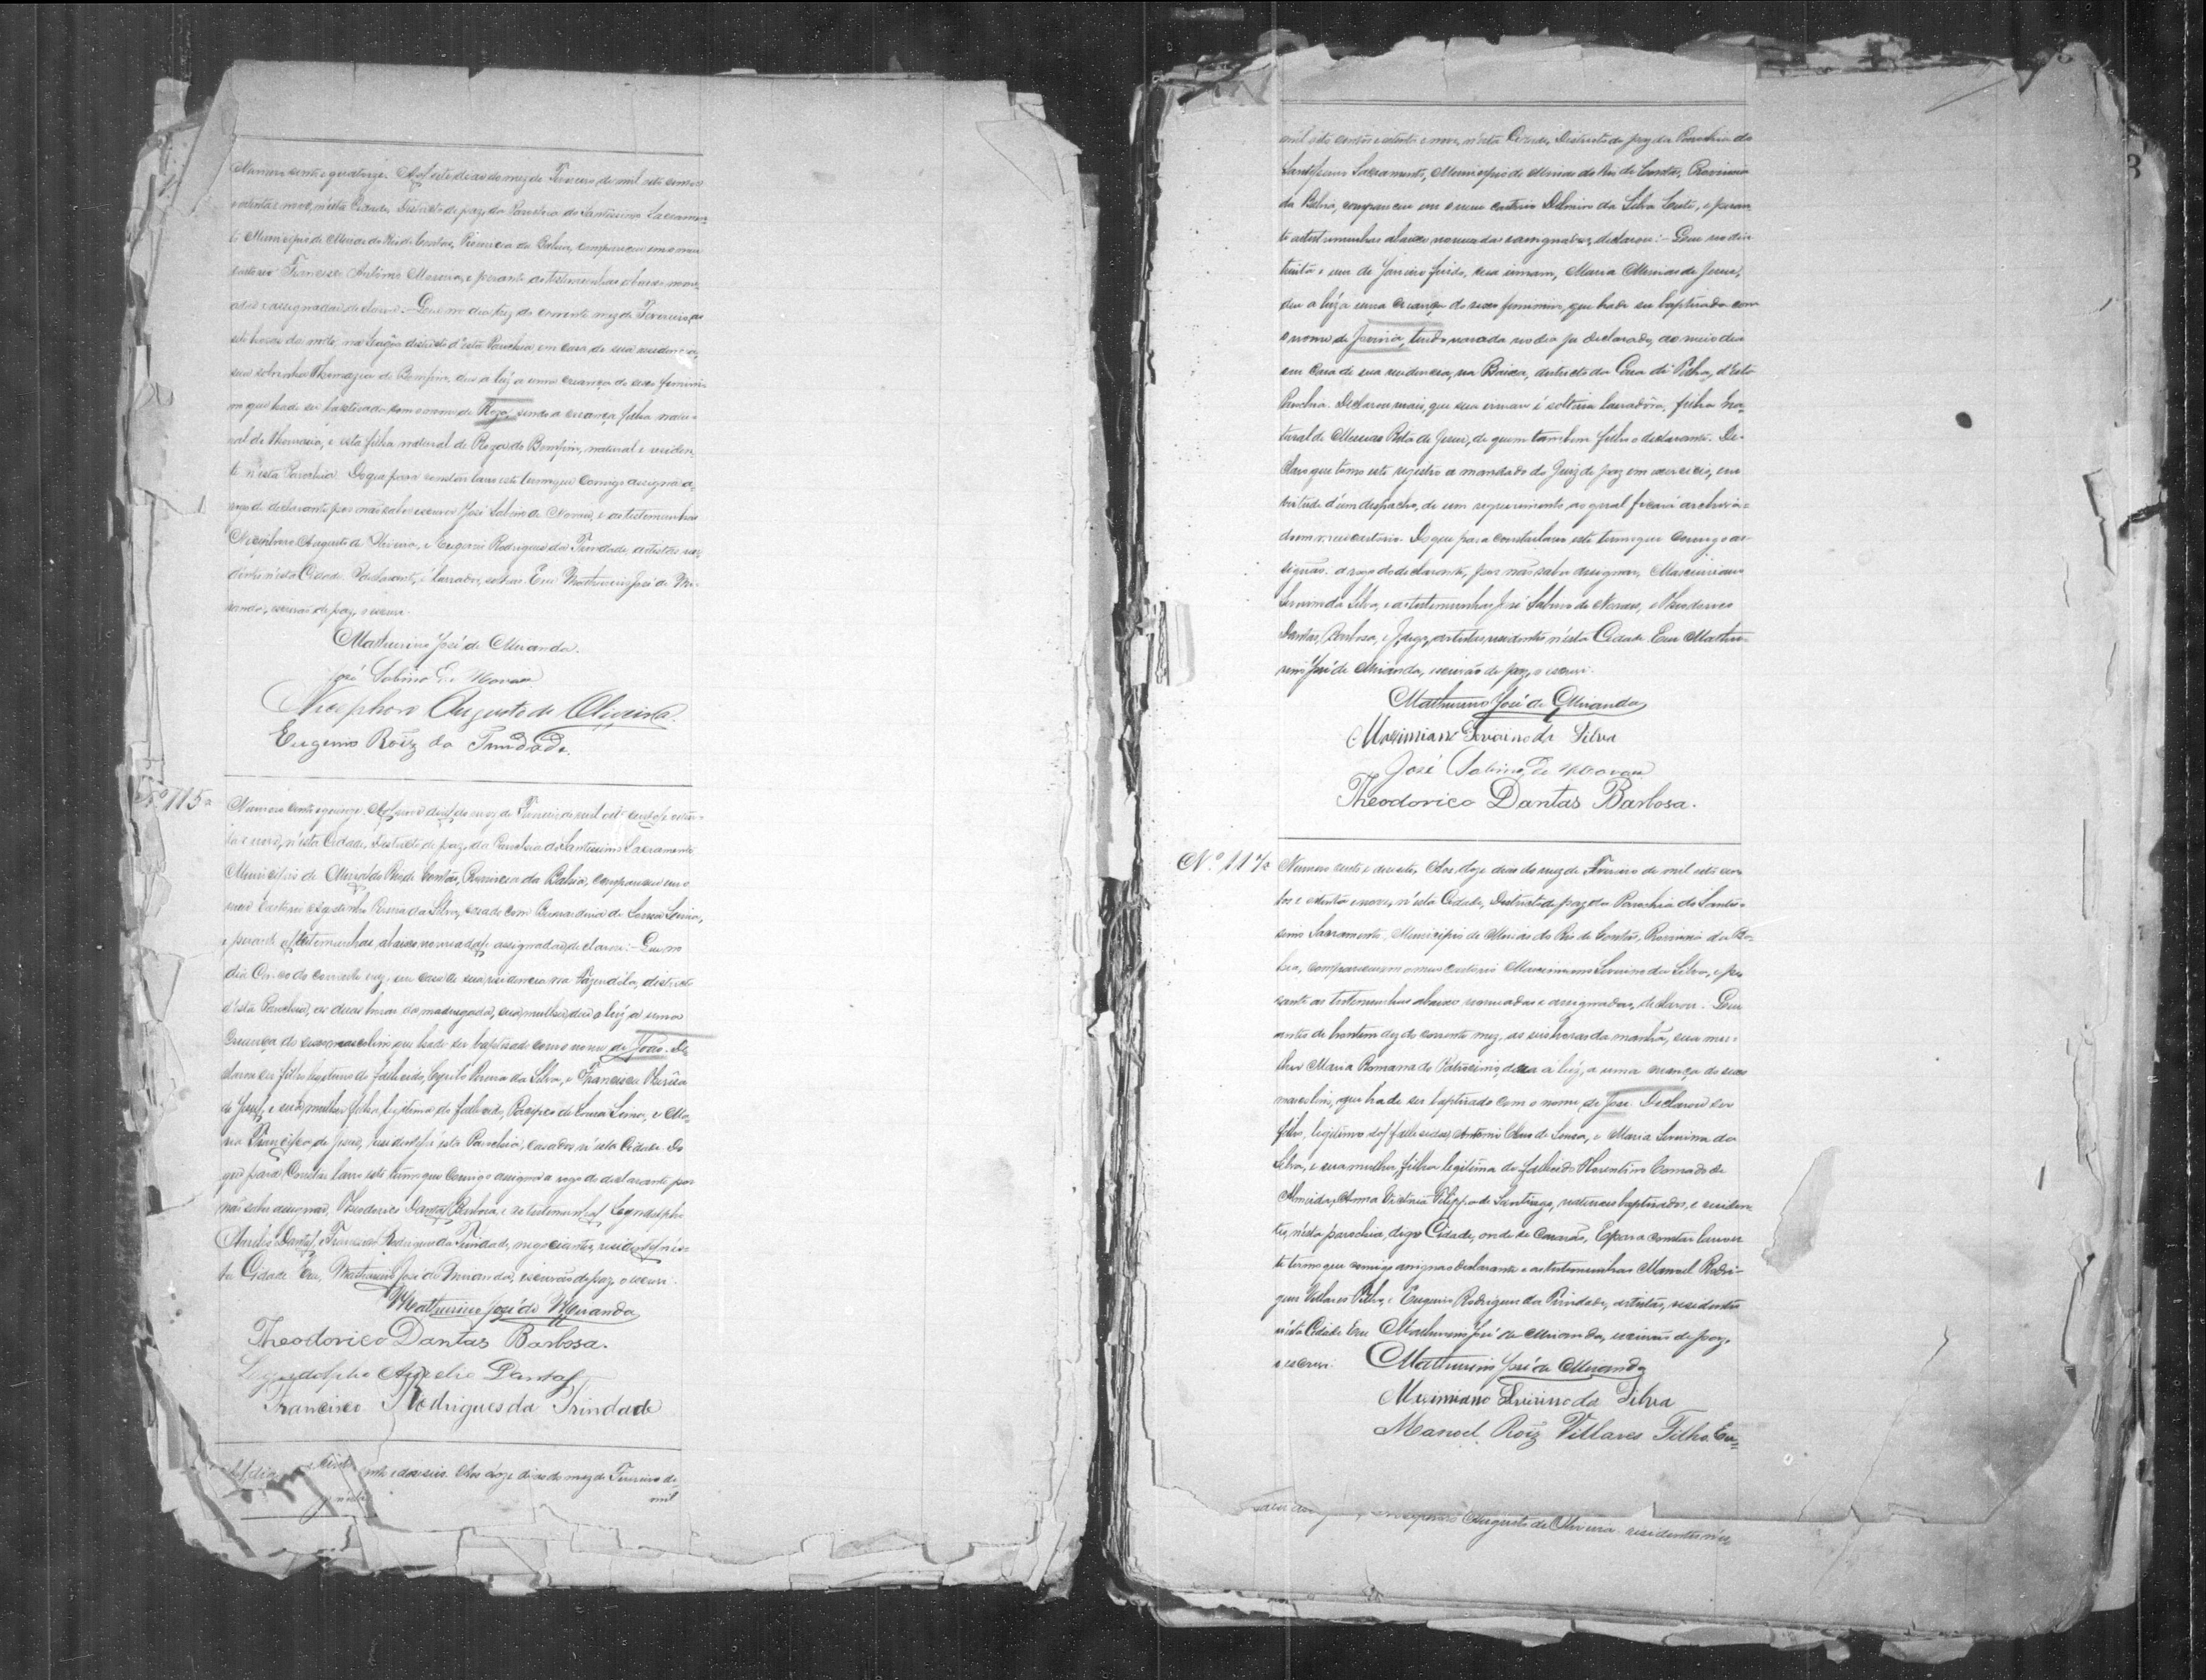 Numero cento e quatorze. Aos sete dias do mez de Fevereiro de mil oito centos
e oitenta e nove, n'esta Cidade, Districto de paz, da Parochia do Santissimo Sacramen-
to Municipio de Minas do Rio de Contas, Provincia da Bahia, compareceu em o meu
cartorio Francisco Antonio Moreira, e perante as testemunhas abaixo nome-
adas e assignadas, declarou: Que no dia trez do corrente mez de Fevereiro, as
sete horas da noite, na districto d'esta Parochia, em casa de sua residencia,
sua sobrinha Thomazia do Bomfim, deu a lúz a uma creança do sexo femini-
no que hade ser baptisada com o nome de Roza, sendo a creança filha natu-
ral de Thomazia, e esta filha natural de Roza do Bomfim, natural e residen-
te n'esta Parochia. Do que para constar lavro este termo que comigo assigna a
rogo do declarante por não saber escrever José Sabino de Novaes, e as testemunhas
Nicephoro Augusto de Oliveira, e Eugenio Rodrigues da Trindade, artistas resi-
dentes n'esta Cidade. O declarante, é lavrador, solteiro. Eu Mathurino José de Mi-
randa, escrivão de paz, o escrevi.
Mathurino José de Miranda.
José Sabino de Novaes
Nicephoro Augusto de Oliveira.
Eugenio Roiz da Trindade.
Nº 115
Numero cento e quinze. Aos nove dias do mez de Fevereiro de mil oito centos e oiten-
ta e nove, n'esta Cidade, Districto de paz, da Parochia do Santissimo Sacramento
Municipio de Minas do Rio de Contas, Provincia da Bahia, compareceu em o
meu cartorio Pereira da Silva, casado com Bernardina de Souza Lima,
e perante as testemunhas, abaixo nomeadas e assignadas, declarou: - Que no
dia Cinco do corrente mez, em casa de sua residencia na Fazendola, districto
d'esta Parochia, as duas horas da madrugada, sua mulher deu a lúz a uma
creança do sexo masculino que hade ser baptisado com o nome de João. De-
clarou ser filho legitimo do fallecido, Cyrilo Pereira da Silva, e Francisca
de Jesus, e sua mulher filha legitima do fallecido, de Souza Lima, e Ma-
ria Francisca de Jesus, residentes n'esta Parochia, casados n'esta Cidade. Do
que para Constar lavro este termo que comigo assigna a rogo do declarante por
não saber assignar, Theodorico Dantas Barbosa, e as testemunhas Lgndolpho
Aurelio Dantas, e Francisco Rodrigues da Trindade, negociantes, residentes n'es-
ta Cidade. Eu, Mathurino José de Miranda, escrivão de paz, o escrevi.
Mathurino José de Miranda
Theodorico Dantas Barbosa.
Lgndolpho Aurelio Dantas
Francisco Rodrigues da Trindade
cento e dezeseis. Aos doze dias do mez de Fevereiro de
mil
mil oito centos e oitenta e nove, n'esta Cidade, Districto de paz da Parochia do
Santissimo Sacramento, Municipio de Minas do Rio de Contas, Provincia
da Bahia, compareceu em o meu cartorio Delmiro da Silva, e peran-
te as testemunhas abaixo nomeadas e assignadas, declarou: - Que no dia
trinta e um de Janeiro findo, sua irmam, Maria Messias de Jesus,
deu a lúz a uma creança do sexo feminino, que hade ser baptisada com
o nome de Jovina, tendo nascido no dia ja declarado, ao meio dia
em Casa de sua residencia, na Baixa, districto da Casa de Telha, d'esta
Parochia. Declarou mais, que sua irmam é solteira lavradôra, filha na-
tural de Messias Rita de Jesus, de quem tambem filho o declarante. De-
claro que tomo este registro a mandado do Juiz de paz em exercicio, em
virtude d'um despacho, de um requerimento, ao qual ficará archiva-
do em o meu cartorio. Do que para constar lavro este termo que comigo as-
signão. a rogo do declarante, por não saber assignar, Maximiano
Severino da Silva, e as testemunhas José Sabino de Novaes, e Theodorico
Dantas Barbosa, e artistas, residentes n'esta Cidade. Eu Mathu-
rino José de Miranda, escrivão de paz, o escrevi.
Mathurino José de Miranda
Maximiano Severino da Silva
José Sabino de Novaes
Theodorico Dantas Barbosa.
Nº 117
Numero cento e dezesete, Aos doze dias do mez de Fevereiro de mil oito cen-
tos e oitenta e nove, n'esta Cidade, Districto de paz da Parochia do Santis-
simo Sacramento, Municipio de Minas do Rio de Contas, Provincia da Ba-
hia, compareceu em o meu cartorio Maximiano Severino da Silva, e pe-
rante as testemunhas abaixo nomeadas e assignadas, declarou. Que
antes de hontem dez do corrente mez, as seis horas da manhã, sua mu-
lher Maria Romana do Patrocinio, dera á lúz, a uma creança do sexo
masculino, que hade ser baptisado com o nome de José. Declarou ser
filho, legitimo dos fallecidos, Antonio de Souza, e Maria Severina da
Silva, e sua mulher, filha legitima do fallecido Florentino Conrado de
Almeida, e Anna Filippa de Santiago, naturaes baptisados, e residen-
tes, n'esta parochia, digo Cidade, onde se casarão, E para constar lavro es-
te termo que comigo assignão o declarante e as testemunhas Manoel Rodri-
gues Villares Filho, e Eugenio Rodrigues da Trindade, artistas, residentes
n'esta Cidade. Eu Mathurino José de Miranda, escrivão de paz,
o escrevi. Mathurino José de Miranda
Maximiano Severino da Silva
Manoel Roiz Villares Filho. Eu-
Nicephoro Augusto de Oliveira residentes n'es